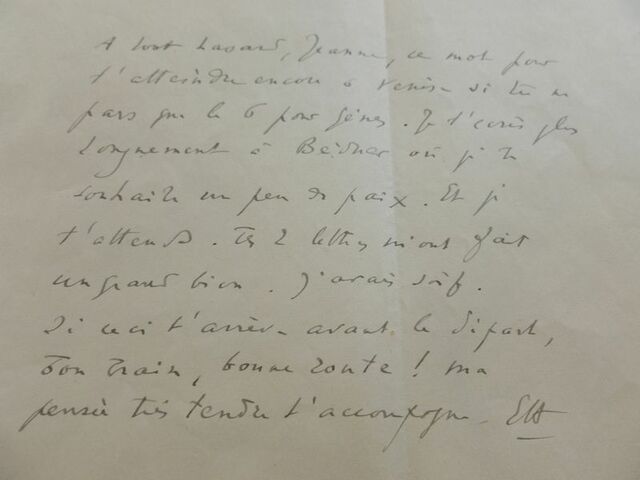 A tout hasard, Jeanne, ce mot pour
t'atteindre encore à Venise si tu ne
pars que le 6 pour Gênes. Je t'écris plus
longuement à où je te
souhaite un peu de paix. Et je
t'attends. Tes 2 lettres m'ont fait
un grand bien. J'avais soif.
Si ceci t'arrive avant le départ,
bon train, bonne route ! ma
pensée très tendre t'accompagne.